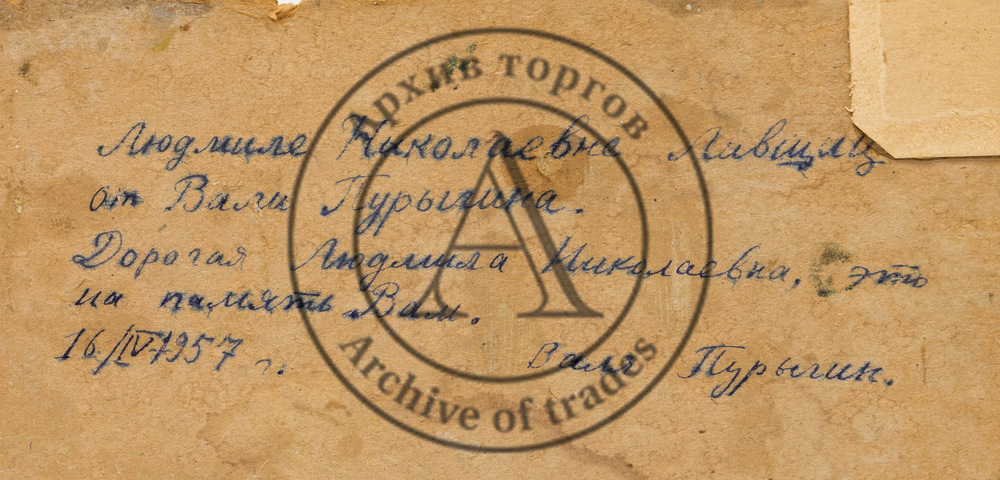 Архив торгов
Людмиле Николаевне Лившиц
от Вали Пурыгина.
Дорогая Людмила Николаевна, это
на память Вам.
16/IV 1957 г.
Валя Пурыгин.
Archive of trades